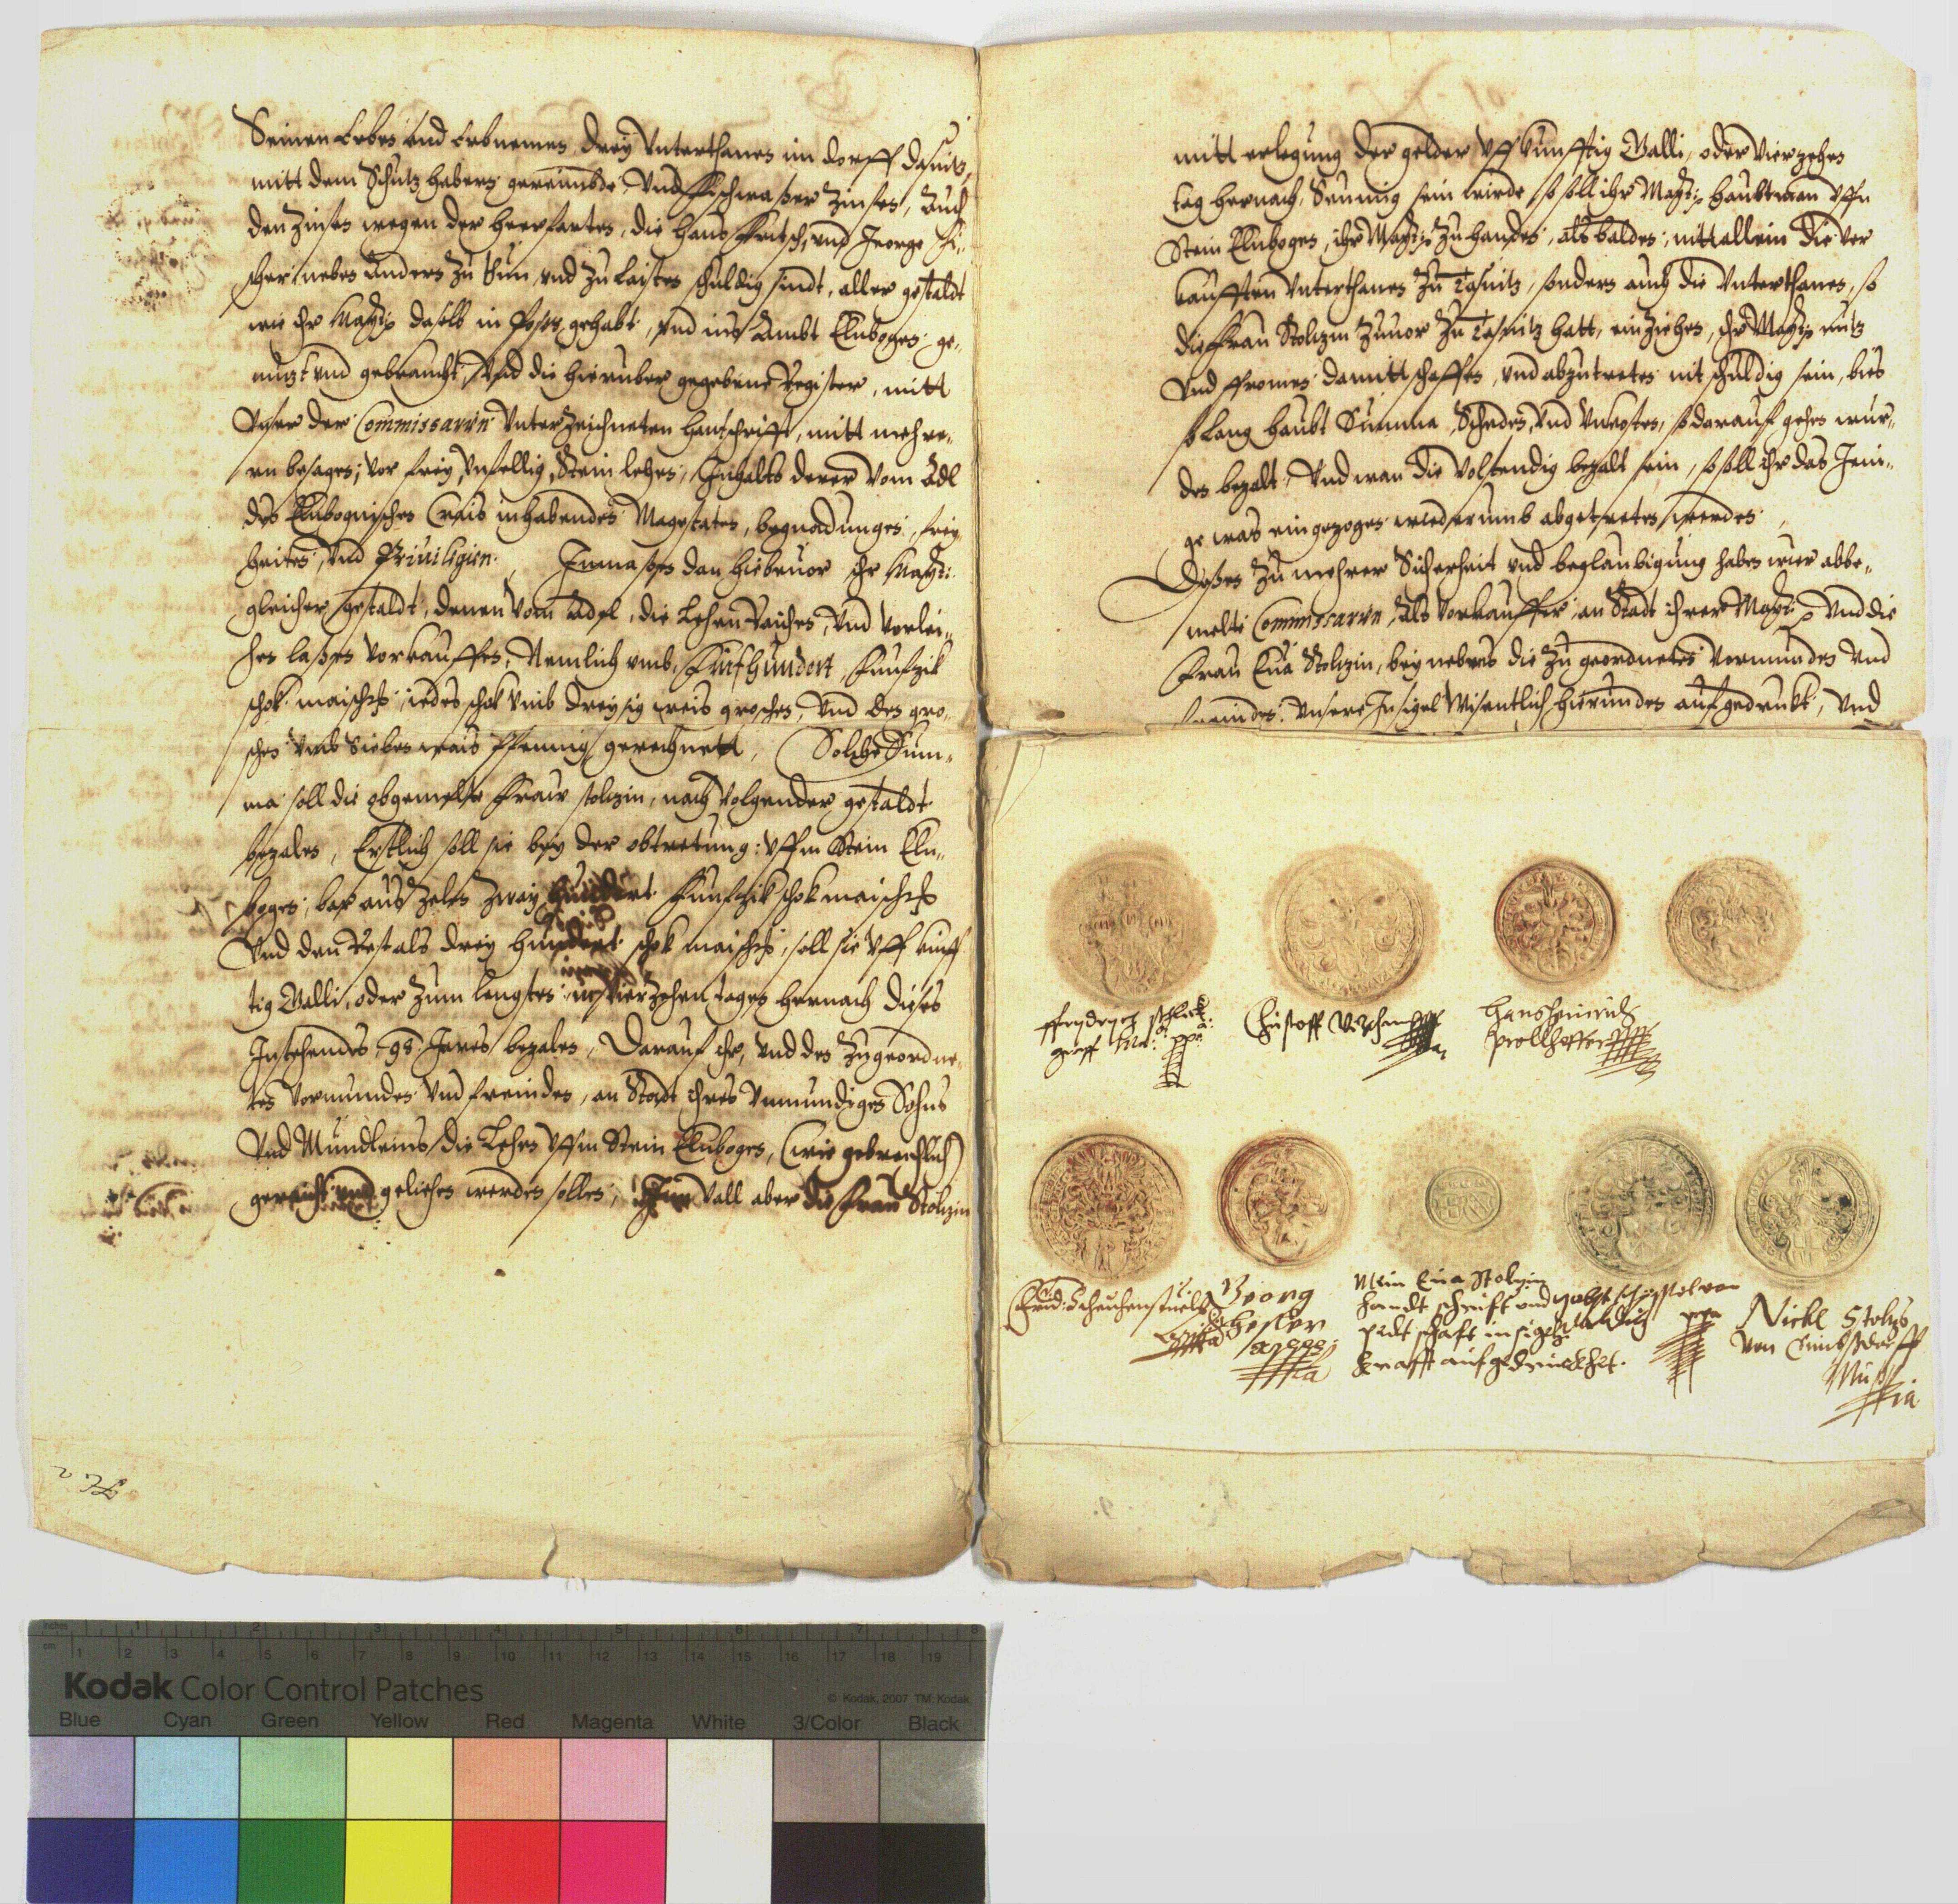 Seinen Erben und Erbnemen, drey Unterthanen im dorff dasnitz,
mitt dem Schutz habern gereinnbde, und Fischwasser Zinsen, Auch
den Zinsen wegen der heerfarten, die hans Fritsch, und George Fi,,
scher, neben Andern zu thun, und zu laisten schuldig sindt, aller gestaldt
wie Ihr Mayt: daselb in Poses gehabt, und ins Ambt Elnbogen ge,,
nuzt und gebraucht, Und die hieruber gegebene Register, mitt
Unser der Commissarien Unterzeichneten handschrifft, mitt mehre,,
rn besagen; Vor frey, Unfellig, Stein lehen, Inhalts derer vom Adl
des Elnbognischen Crais inhabenden Magestaten, begnadungen, frey
heiten, und Privilegien. Inmassen dan hiebevor Ihr Mayt:
gleicher gestaldt, denen vom Adel, die Lehen Raichen, und vorlei,,
hen lassen Vorkauffen, Nemlich umb, Fünfhundert, Funfzik
schok maischn, iedes schok umb dreysig weis groschen, und den gro,,
schen umb sieben weis Pfennig gerechnett, Solche Sum,,
ma soll die obgemelte Fraw Stolzin, nach Volgender gestaldt
bezalen, Erstlich soll sie bey der abtretung: Uffm Stein Eln,,
bogen, bar aus Zelen Zwey hundert Funfzik schok maischn
Und den Rest als drey hundert schok maischn, soll sie Uff kunff
tig Galli, oder Zum lengsten in Vierzehen tagen hernach dieses
Instehenden 98 Jares bezalen, Darauf ihr, und den Zugeordne,,
ten Vormunden und freinden, an Stadt ihres Unmundigen Sohns
Und Mundleins die Lehen Uffm Stein Elnbogen, (wie gebreuchlich)
geraicht und geliehen werden sollen, Im Vall aber die Frau Stolzin
mitt erlegung der gelder Uff kunfftig Galli, oder Vierzehen
tag hernach, Seumig sein wirde, so soll ihr Mayt: haubtman Uffn
Stein Elnbogen, ihr Mayt: Zu handen, als balden, nitt allein die Ver
kaufften Unterthanen Zu Tasnitz, sondern auch die Unterthanen, so
die Frau Stolzin Zuvor Zu Tasnitz hatt, einziehen, Ihr Mayt: nutz
Und fromen damitt schaffen, und abzutreten nit schuldig sein, bies
so lang haubt Summa, Scheden, und Unkosten, so darauf gehen wur,,
den bezalt, Und wan die Volstendig bezalt sein, so soll ihr das Jeni,,
ge was eingezogen wiederumb abgetreten werden,
Dessen Zu mehrer Sicherheit und beglaubigung haben wier obbe,,
melte Commissarien, Als Vorkauffer, an Stadt ihrer Mayt: Und die
Frau Eva Stolzin, bey nebens die Zu geordneten Vormunden und
freinden, Unsere Insigel Wisentlich hierunden aufgedrukt, Und
ffrydrych schlick
graff
Christoff
Hans Heinrich
Prollhoffer
Georg
Mein Eva Stolzin
handt schrift und
petschaft insigel
krafft aufgedruckhet.
Nickl Stolz
von